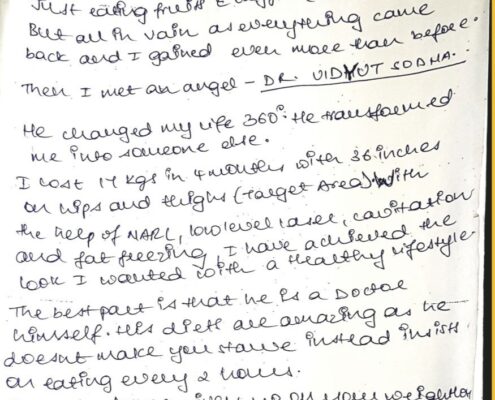 Just eating fruits
But all in vain as everything came
back and I gained even more than before.
Then I met an angel - DR. VIDYUT SODHA.
He changed my life 360°. He transformed
me into someone else.
I lost 17 kgs in 4 months with 36 inches
on hips and thighs (Target Area) with
the help of NARL, low level laser, cavitation
and fat freezing. I have achieved the
look I wanted with a Healthy lifestyle.
The best part is that he is a Doctor
himself. His diets are amazing as he
doesnt make you starve instead insist
on eating every 2 hours.